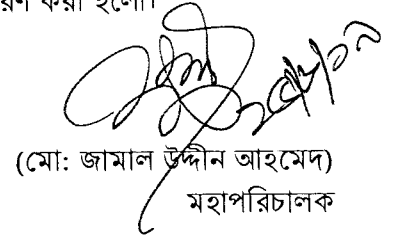 করা হলো।
(মো: জামাল উদ্দীন আহমেদ)
মহাপরিচালক